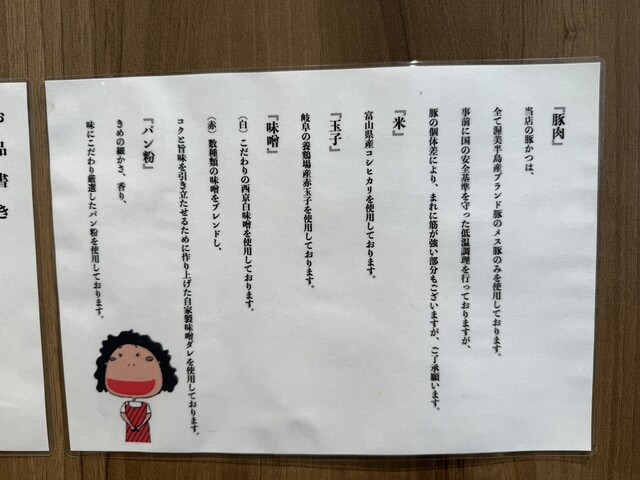 『豚肉』
当店の豚かつは、
全て渥美半島産ブランド豚のメス豚のみを使用しております。
事前に国の安全基準を守った低温調理を行っておりますが、
豚の個体差により、まれに筋が強い部分もございますが、ご了承願います。
『米』
富山県産コシヒカリを使用しております。
『玉子』
岐阜の養鶏場産赤玉子を使用しております。
『味噌』
(白)こだわりの西京白味噌を使用しております。
(赤)数種類の味噌をブレンドし、
コクと旨味を引き立たせるために作り上げた自家製味噌ダレを使用しております。
『パン粉』
きめの細かさ、香り、
味にこだわり厳選したパン粉を使用しております。
お品書き